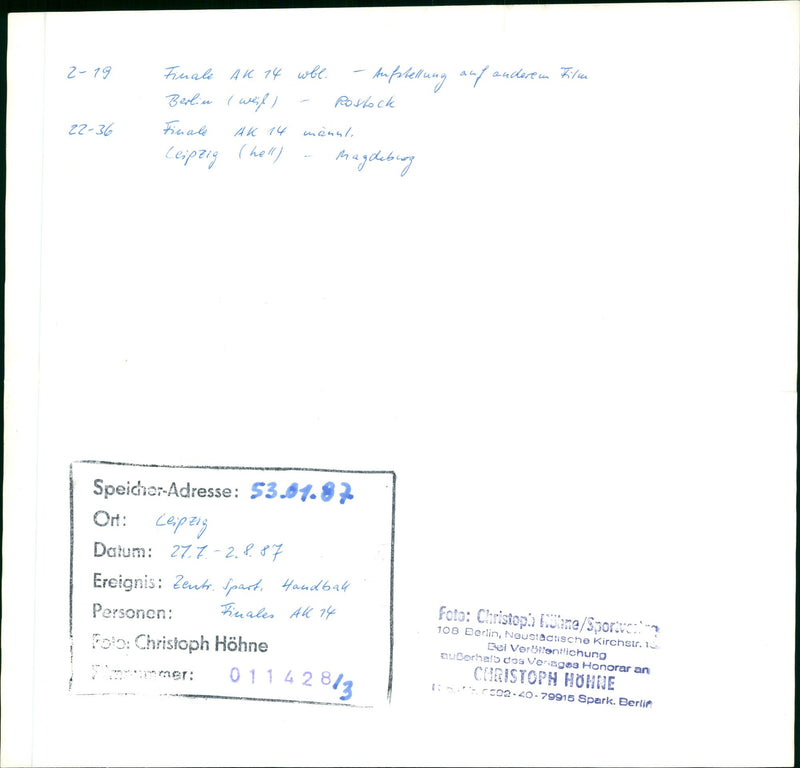 2-19 Finale AK 14 wbl. - Aufstellung auf anderem Film
Berlin (weiß) - Rostock
22-36 Finale AK 14 männl.
Leipzig (hell) - Magdeburg
Speicher-Adresse: 53.01.87
Ort: Leipzig
Datum: 27.7. - 2.8.87
Ereignis: Zentr. Spart. Handball
Personen: Finales AK 14
Foto: Christoph Höhne
Filmnummer: 011428/3
Foto: Christoph Höhne/Sportverlag
108 Berlin, Neustädtische Kirchstr.
Bei Veröffentlichung
außerhalb des Verlages Honorar an
CHRISTOPH HÖHNE
-40-79915 Spark. Berlin